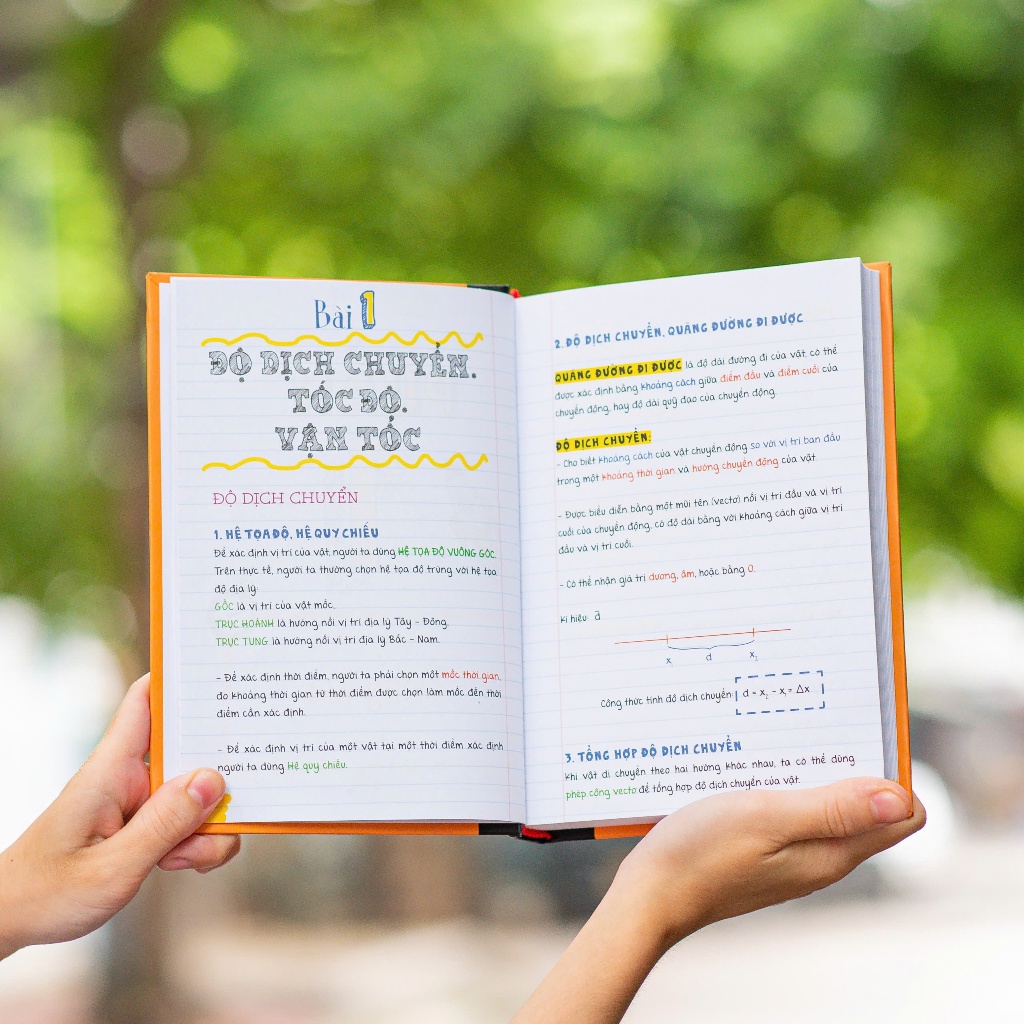 Bài 1
ĐỘ DỊCH CHUYỂN.
TỐC ĐỘ.
VẬN TỐC
ĐỘ DỊCH CHUYỂN
1. HỆ TỌA ĐỘ, HỆ QUY CHIẾU
Để xác định vị trí của vật, người ta dùng HỆ TỌA ĐỘ VUÔNG GÓC.
Trên thực tế, người ta thường chọn hệ tọa độ trùng với hệ tọa
độ địa lý:
GỐC là vị trí của vật mốc,
TRỤC HOÀNH là hướng nối vị trí địa lý Tây - Đông,
TRỤC TUNG là hướng nối vị trí địa lý Bắc - Nam.
- Để xác định thời điểm, người ta phải chọn một mốc thời gian,
đo khoảng thời gian từ thời điểm được chọn làm mốc đến thời
điểm cần xác định.
- Để xác định vị trí của một vật tại một thời điểm xác định
người ta dùng Hệ quy chiếu.
2. ĐỘ DỊCH CHUYỂN, QUÃNG ĐƯỜNG ĐI ĐƯỢC
QUÃNG ĐƯỜNG ĐI ĐƯỢC là độ dài đường đi của vật, có thể
được xác định bằng khoảng cách giữa điểm đầu và điểm cuối của
chuyển động, hay độ dài quỹ đạo của chuyển động.
ĐỘ DỊCH CHUYỂN:
- Cho biết khoảng cách của vật chuyển động so với vị trí ban đầu
trong một khoảng thời gian và hướng chuyển động của vật.
- Được biểu diễn bằng một mũi tên (vectơ) nối vị trí đầu và vị trí
cuối của chuyển động, có độ dài bằng với khoảng cách giữa vị trí
đầu và vị trí cuối.
- Có thể nhận giá trị dương, âm, hoặc bằng 0.
Kí hiệu: d⃗
x d x₂
Công thức tính độ dịch chuyển: d = x₂ - x₁ = Δx
3. TỔNG HỢP ĐỘ DỊCH CHUYỂN
Khi vật di chuyển theo hai hướng khác nhau, ta có thể dùng
phép cộng vectơ để tổng hợp độ dịch chuyển của vật.